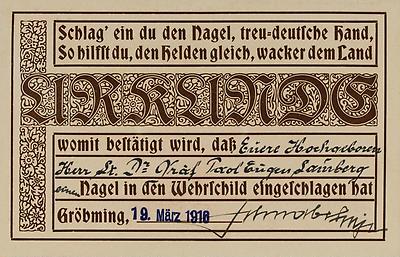 Schlag' ein du den Nagel, treu-deutsche Hand,
So hilfst du, den Helden gleich, wacker dem Land
URKUNDE
womit bestätigt wird, daß Euere Hochgeboren
Herr Lt. Dr Graf Paol Eugen Lamberg
einen Nagel in den Wehrschild eingeschlagen hat
Gröbming, 19. März 1916